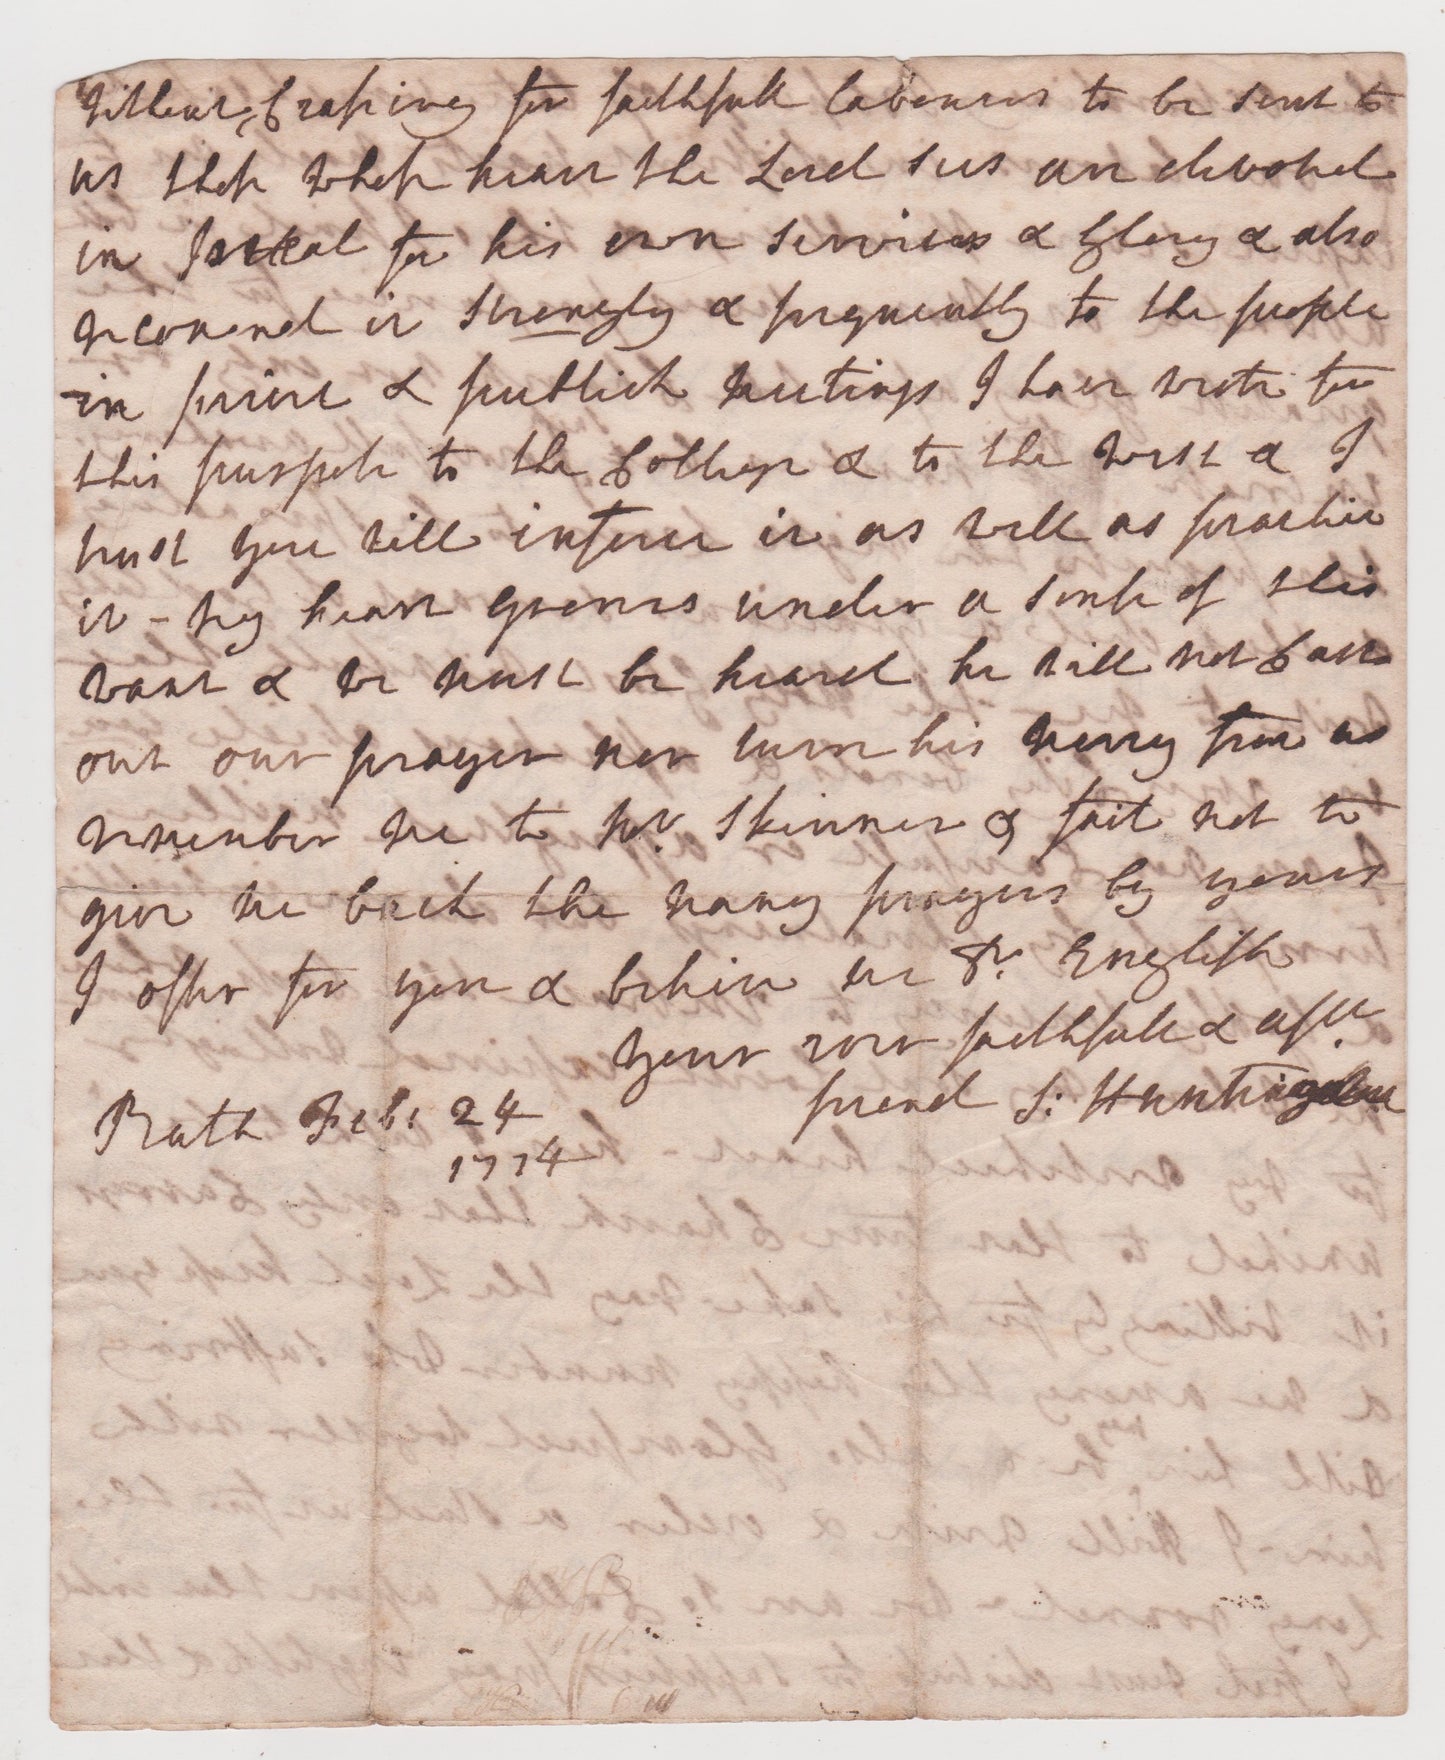 without ceasing for faithfull labourers to be sent to
us thos whose heart the Lord sees are devoted
in Israel for his own services & Glory & also
recomend it strongly & frequently to the people
in privt & publick meetings I have wrote for
this purpose to the College & to the west & I
trust you will inforce it as well as practice
it – my heart groens under a sense of this
want & we must be heard he will not Cast
out our prayer nor turn his mercy from us
remember me to Mr. Skinner & fail not to
give me back the many prayers by yours
I offer for you & believe me Dr. English
your ever faithfull & affte.
friend S: Huntingdon
Bath Feb: 24
1774